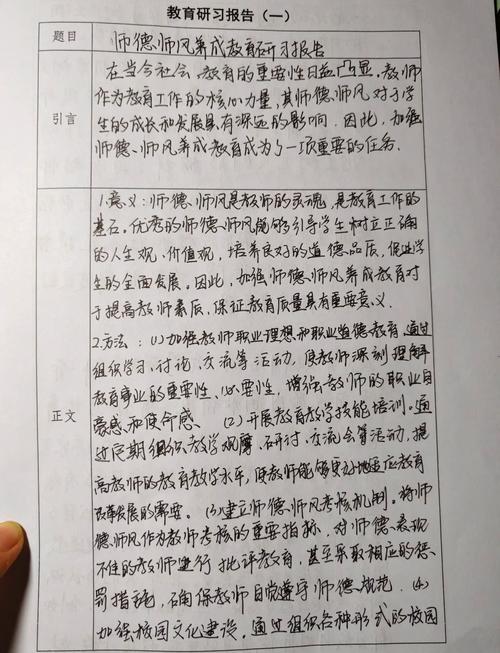 教育研习报告（一）
题目
师德师风养成教育研习报告
引言
在当今社会，教育的重要性日益凸显。教师
作为教育工作的核心力量，其师德师风对于学
生的成长和发展具有深远的影响．因此，加强
师德、师风养成教育成为了一项重要的任务．
正文
1.意义：师德、师风是教师的灵魂，是教育工作的
基石。优秀的师德、师风能够引导学生树立正确
的人生观、价值观，培养良好的道德品质，促进学
生的全面发展。因此，加强师德师风养成教育对
于提高教师素质，保证教育质量具有重要意义．
2.方法：(1)加强教师职业理想和职业道德教育．通过
组织学习、讨论、交流等活动，使教师深刻理解
教育事业的重要性、必要性，增强教师的职业自
豪感和使命感、 (2)开展教育教学技能培训。通
过定期组织教学观摩、研讨、交流会等活动，提
高教师的教育教学水平，使教师能够更好地适应教育
改革发展的需要． (3)建立师德师风考核机制。将师
德师风作为教师考核的重要指标，对师德表现
不佳的教师进行批评教育，甚至采取相应的惩
罚措施，确保教师自觉遵守师德规范． (4)
加强校园文化建设。通过组织各种形式的校园